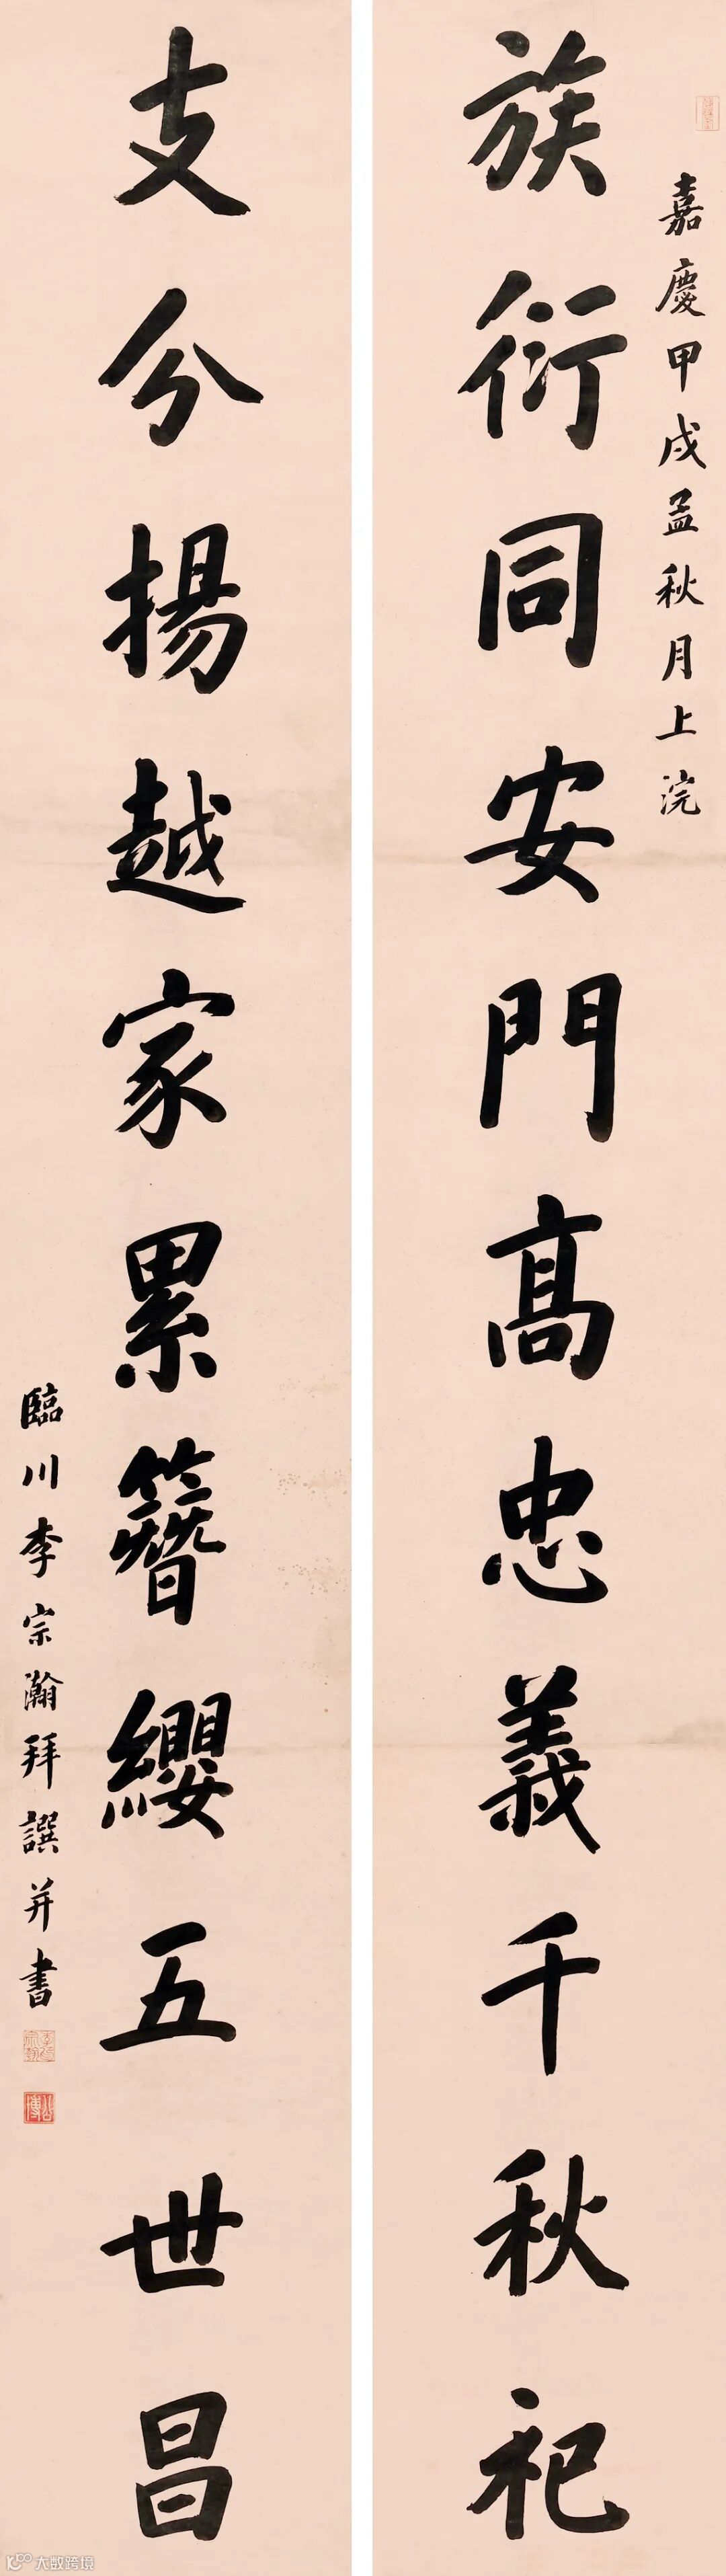 嘉慶甲戌孟秋月上浣
族衍同安門高忠義千秋祀
支分揚越家累簪纓五世昌
臨川李宗瀚拜譔并書
大数跨境